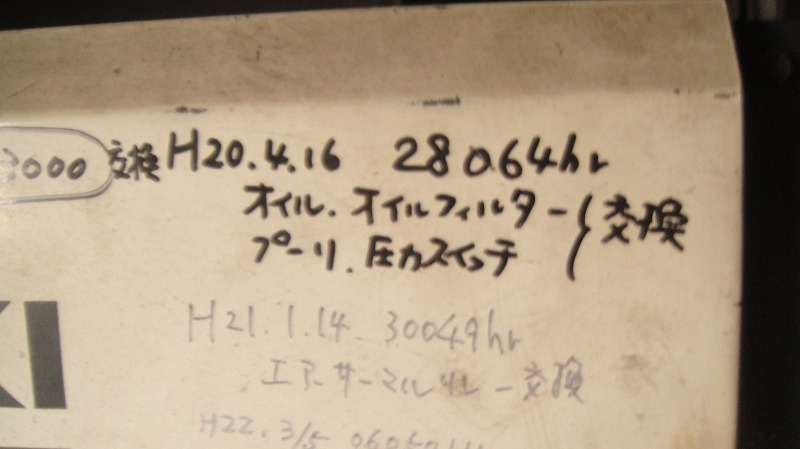 000 交換 H20.4.16 28064hr
オイル．オイルフィルター 交換
プーリ．圧力スイッチ
H21.1.14 30049hr
エアーサーマルリレー交換
H22.3/5
KI